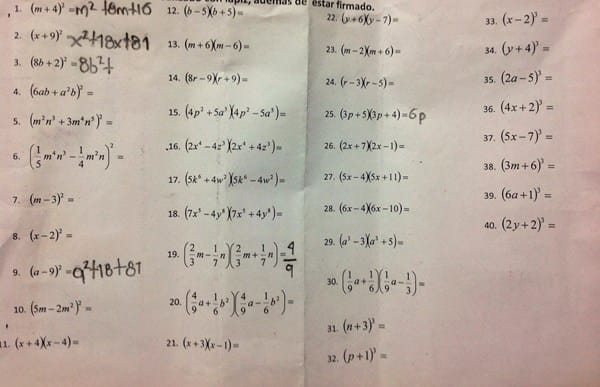 lápiz, además de estar firmado.
1. (m+4)² = m² +8m+16
2. (x+9)² = x²+18x+81
3. (8b+2)² = 8b²+
4. (6ab+a²b)² =
5. (m²n³+3m⁴n⁵)² =
6. (1/5 m⁴n³ - 1/4 m²n)² =
7. (m-3)² =
8. (x-2)² =
9. (a-9)² = a²+18+81
10. (5m-2m²)² =
11. (x+4)(x-4) =
12. (b-5)(b+5) =
13. (m+6)(m-6) =
14. (8r-9)(r+9) =
15. (4p²+5a³)(4p²-5a³) =
16. (2x⁴-4z³)(2x⁴+4z³) =
17. (5k⁶+4w²)(5k⁶-4w²) =
18. (7x⁵-4y⁸)(7x⁵+4y⁸) =
19. (2/3 m - 1/7 n)(2/3 m + 1/7 n) = 4/9
20. (4/9 a + 1/6 b²)(4/9 a - 1/6 b²) =
21. (x+3)(x-1) =
22. (y+6)(y-7) =
23. (m-2)(m+6) =
24. (r-3)(r-5) =
25. (3p+5)(3p+4) = 6p
26. (2x+7)(2x-1) =
27. (5x-4)(5x+11) =
28. (6x-4)(6x-10) =
29. (a³-3)(a³+5) =
30. (1/9 a + 1/6)(1/9 a - 1/3) =
31. (n+3)³ =
32. (p+1)³ =
33. (x-2)³ =
34. (y+4)³ =
35. (2a-5)³ =
36. (4x+2)³ =
37. (5x-7)³ =
38. (3m+6)³ =
39. (6a+1)³ =
40. (2y+2)³ =